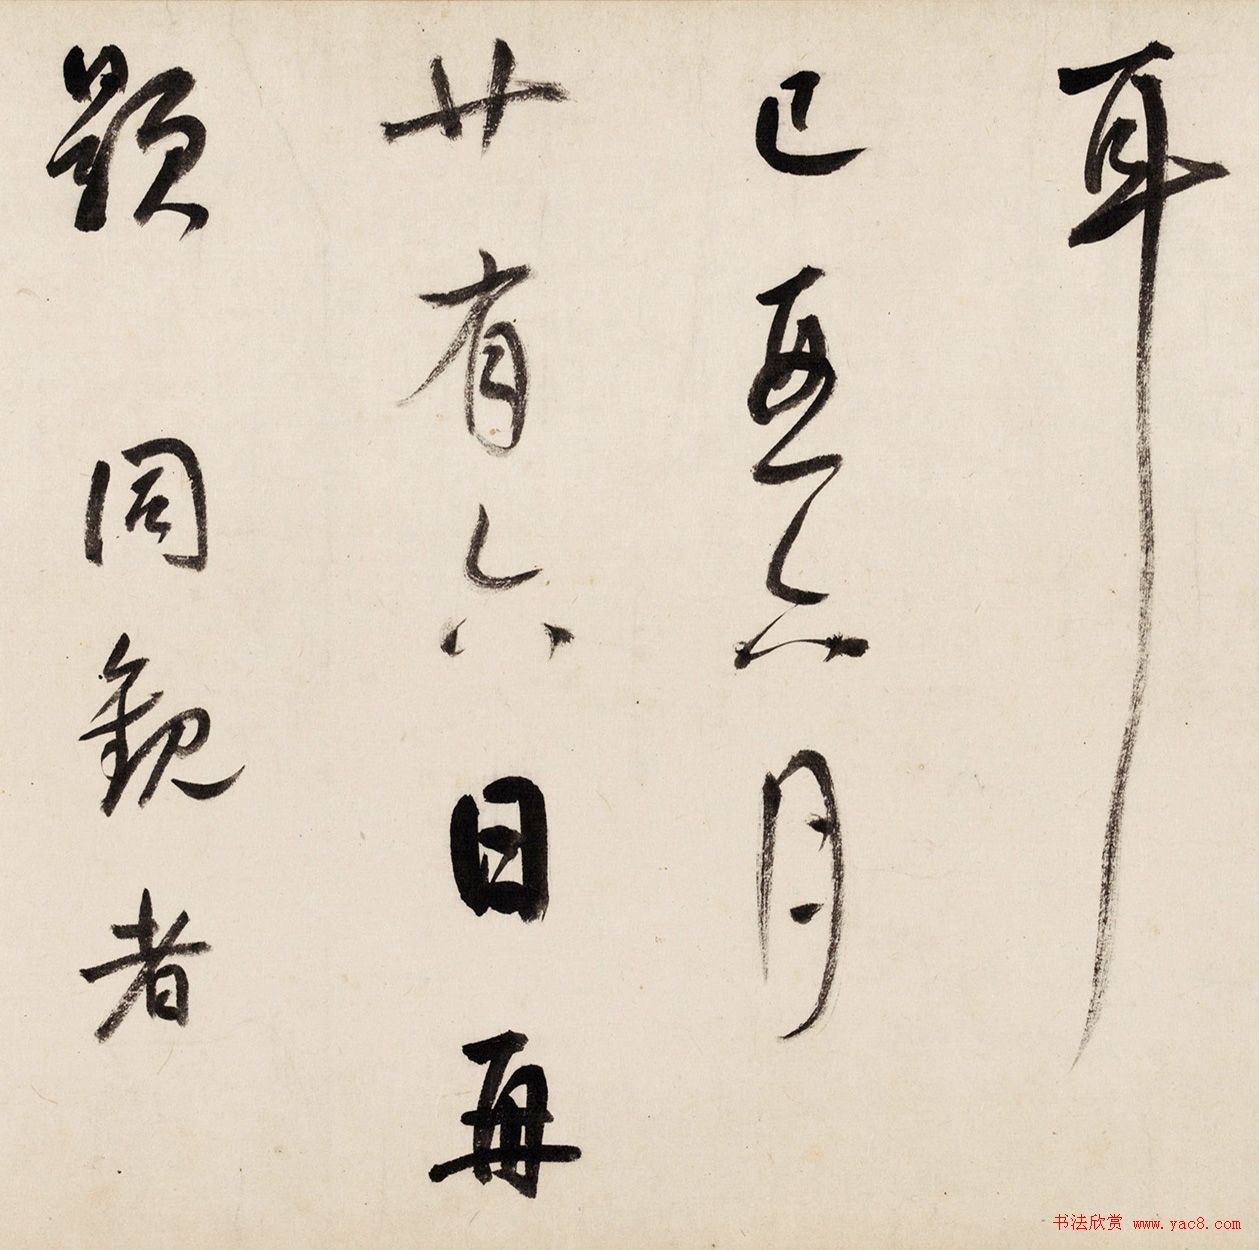 耳
己酉六月
廿有六日再
題 同觀者
书法欣赏 www.yac8.com